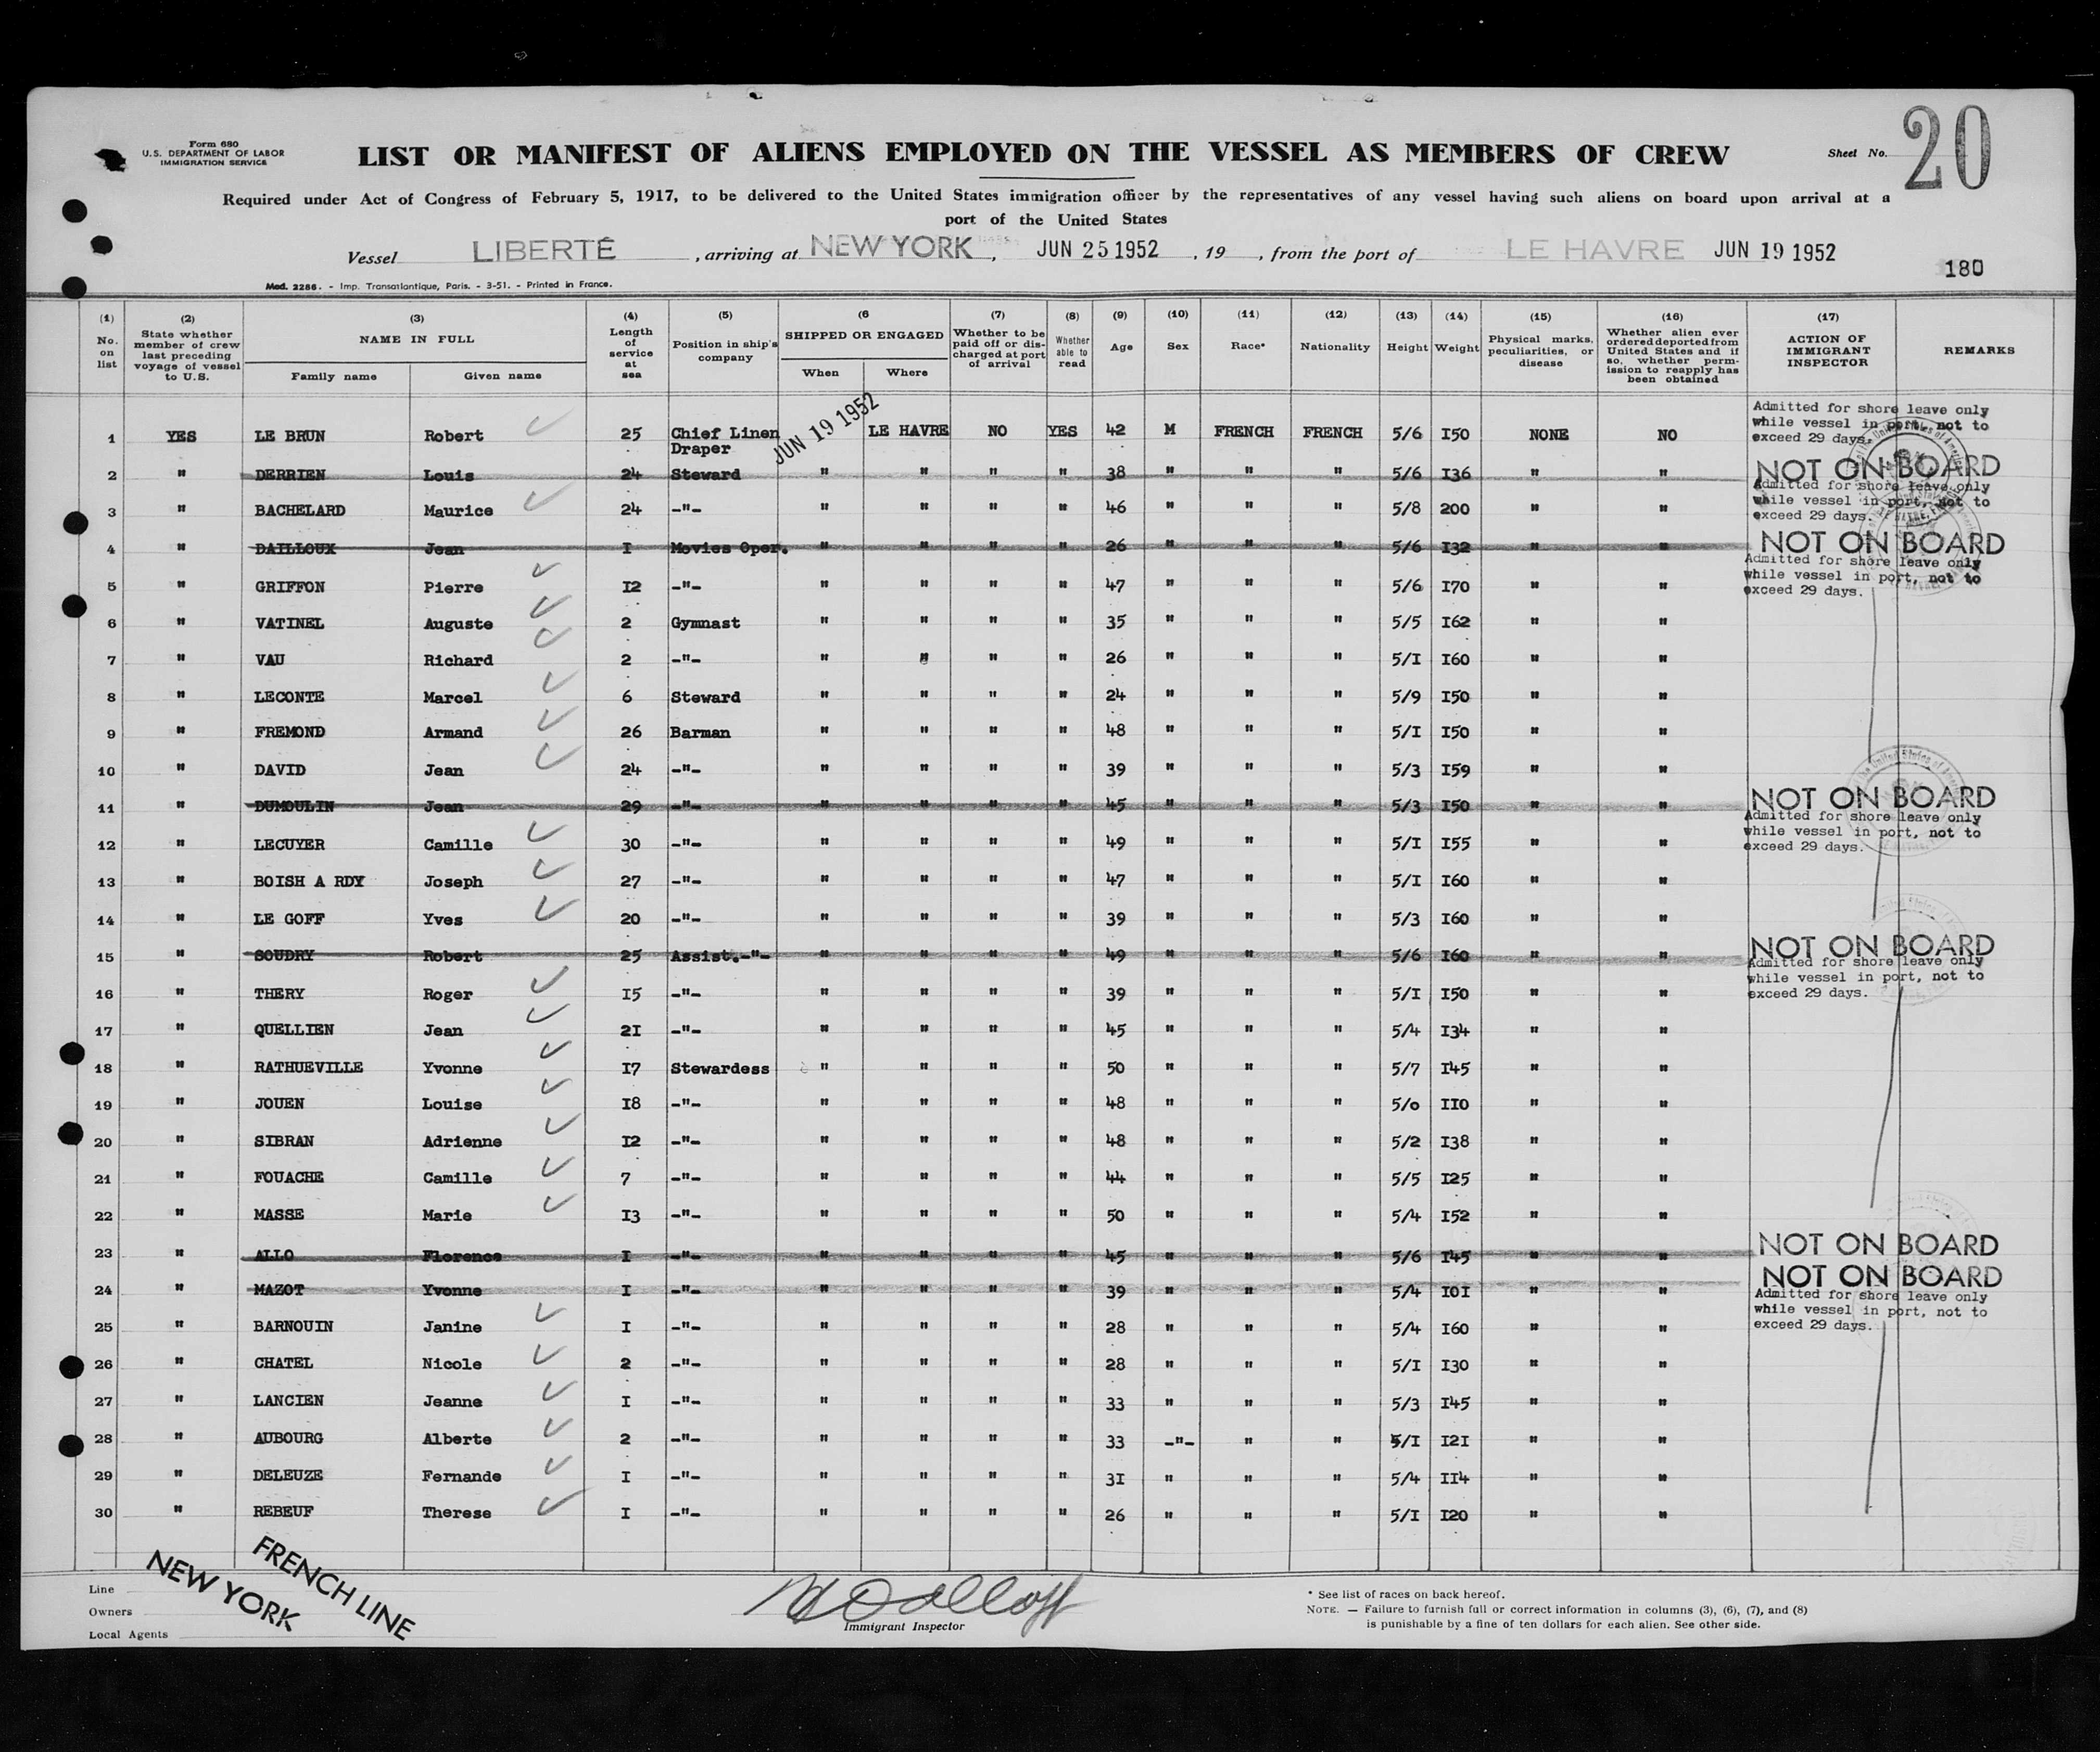 Form 680
U.S. DEPARTMENT OF LABOR
IMMIGRATION SERVICE
LIST OR MANIFEST OF ALIENS EMPLOYED ON THE VESSEL AS MEMBERS OF CREW
Sheet No. 20
Required under Act of Congress of February 5, 1917, to be delivered to the United States immigration officer by the representatives of any vessel having such aliens on board upon arrival at a
port of the United States
Vessel LIBERTÉ , arriving at NEW YORK , JUN 25 1952 , 19 , from the port of LE HAVRE JUN 19 1952
180
Mod. 2286. - Imp. Transatlantique, Paris. - 3-51. - Printed in France.
(1) No. on list (2) State whether member of crew last preceding voyage of vessel to U.S. (3) NAME IN FULL Family name Given name (4) Length of service at sea (5) Position in ship's company (6 SHIPPED OR ENGAGED When Where (7) Whether to be paid off or discharged at port of arrival (8) Whether able to read (9) Age (10) Sex (11) Race* (12) Nationality (13) Height (14) Weight (15) Physical marks, peculiarities, or disease (16) Whether alien ever ordered deported from United States and if so, whether permission to reapply has been obtained (17) ACTION OF IMMIGRANT INSPECTOR REMARKS
1 YES LE BRUN Robert 25 Chief Linen Draper JUN 19 1952 LE HAVRE NO YES 42 M FRENCH FRENCH 5/6 I50 NONE NO Admitted for shore leave only while vessel in port, not to exceed 29 days.
2 " DERRIEN Louis 24 Steward " " " " 38 " " " 5/6 I36 " " NOT ON BOARD
3 " BACHELARD Maurice 24 -"- " " " " 46 " " " 5/8 200 " " Admitted for shore leave only while vessel in port, not to exceed 29 days.
4 " DAILLOUX Jean I Movies Oper. " " " " 26 " " " 5/6 I32 " " NOT ON BOARD
5 " GRIFFON Pierre I2 -"- " " " " 47 " " " 5/6 I70 " " Admitted for shore leave only while vessel in port, not to exceed 29 days.
6 " VATINEL Auguste 2 Gymnast " " " " 35 " " " 5/5 I62 " "
7 " VAU Richard 2 -"- " " " " 26 " " " 5/I I60 " "
8 " LECONTE Marcel 6 Steward " " " " 24 " " " 5/9 I50 " "
9 " FREMOND Armand 26 Barman " " " " 48 " " " 5/I I50 " "
10 " DAVID Jean 24 -"- " " " " 39 " " " 5/3 I59 " "
11 " DUMOULIN Jean 29 -"- " " " " 45 " " " 5/3 I50 " " NOT ON BOARD
12 " LECUYER Camille 30 -"- " " " " 49 " " " 5/I I55 " " Admitted for shore leave only while vessel in port, not to exceed 29 days.
13 " BOISH A RDY Joseph 27 -"- " " " " 47 " " " 5/I I60 " "
14 " LE GOFF Yves 20 -"- " " " " 39 " " " 5/3 I60 " "
15 " SOUDRY Robert 25 Assist.-"- " " " " 49 " " " 5/6 I60 " " NOT ON BOARD
16 " THERY Roger I5 -"- " " " " 39 " " " 5/I I50 " " Admitted for shore leave only while vessel in port, not to exceed 29 days.
17 " QUELLIEN Jean 2I -"- " " " " 45 " " " 5/4 I34 " "
18 " RATHUEVILLE Yvonne I7 Stewardess " " " " 50 " " " 5/7 I45 " "
19 " JOUEN Louise I8 -"- " " " " 48 " " " 5/o IIO " "
20 " SIBRAN Adrienne I2 -"- " " " " 48 " " " 5/2 I38 " "
21 " FOUACHE Camille 7 -"- " " " " 44 " " " 5/5 I25 " "
22 " MASSE Marie I3 -"- " " " " 50 " " " 5/4 I52 " "
23 " ALLO Florence I -"- " " " " 45 " " " 5/6 I45 " " NOT ON BOARD
24 " MAZOT Yvonne I -"- " " " " 39 " " " 5/4 IOI " " NOT ON BOARD
25 " BARNOUIN Janine I -"- " " " " 28 " " " 5/4 I60 " " Admitted for shore leave only while vessel in port, not to exceed 29 days.
26 " CHATEL Nicole 2 -"- " " " " 28 " " " 5/I I30 " "
27 " LANCIEN Jeanne I -"- " " " " 33 " " " 5/3 I45 " "
28 " AUBOURG Alberte 2 -"- " " " " 33 -"- " " 5/I I2I " "
29 " DELEUZE Fernande I -"- " " " " 3I " " " 5/4 II4 " "
30 " REBEUF Therese I -"- " " " " 26 " " " 5/I I20 " "
Line
Owners
Local Agents
FRENCH LINE
NEW YORK
Immigrant Inspector
* See list of races on back hereof.
NOTE. — Failure to furnish full or correct information in columns (3), (6), (7), and (8)
is punishable by a fine of ten dollars for each alien. See other side.